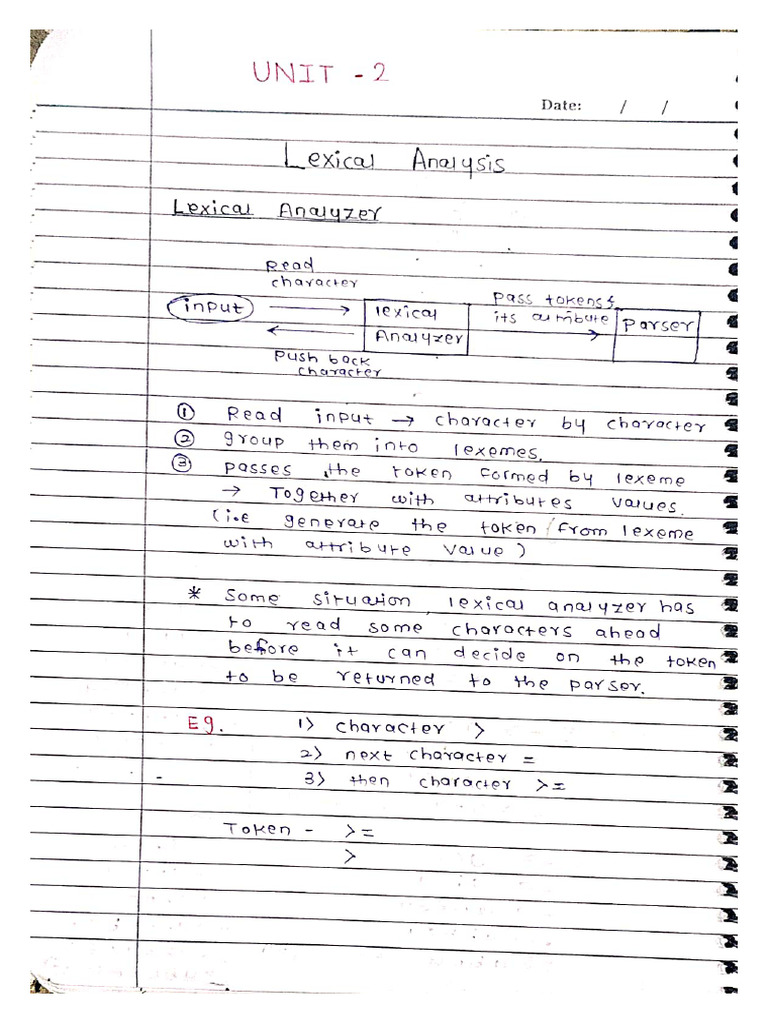 UNIT - 2
Date: / /
Lexical Analysis
Lexical Analyzer
Read
character
input → lexical
Analyzer
pass tokens &
its attribute
parser
push back
character
① Read input → character by character
② group them into lexemes.
③ passes the token formed by lexeme
→ Together with attributes values.
(i.e generate the token from lexeme
with attribute value)
* Some situation, lexical analyzer has
to read some characters ahead
before it can decide on the token
to be returned to the parser.
Eg. 1) character >
2) next character =
3) then character >=
Token - >=
>